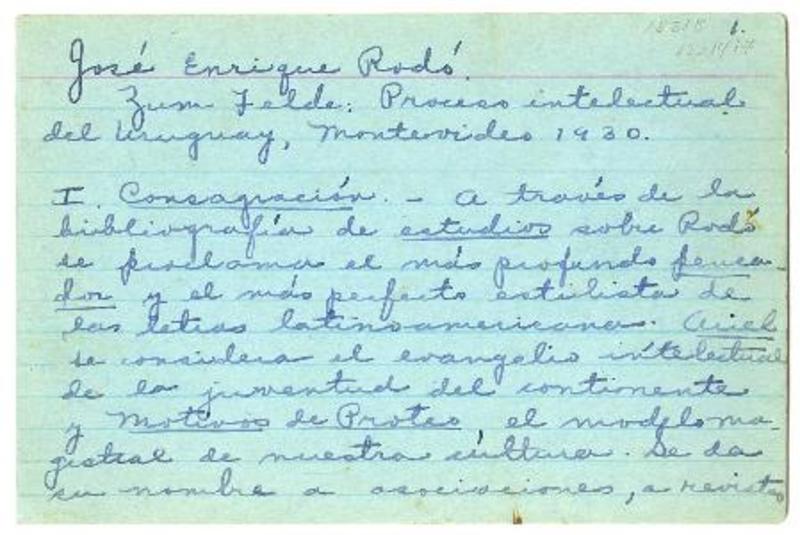 1.
José Enrique Rodó.
Zum Felde: Proceso intelectual
del Uruguay, Montevideo 1930.
I. Consagración. - A través de la
bibliografía de estudios sobre Rodó
se proclama el más profundo pensa-
dor y el más perfecto estilista de
las letras latinoamericana. Ariel
se considera el evangelio intelectual
de la juventud del continente
y Motivos de Proteo, el modelo ma-
gistral de nuestra cultura. Se da
su nombre a asociaciones, a revistas